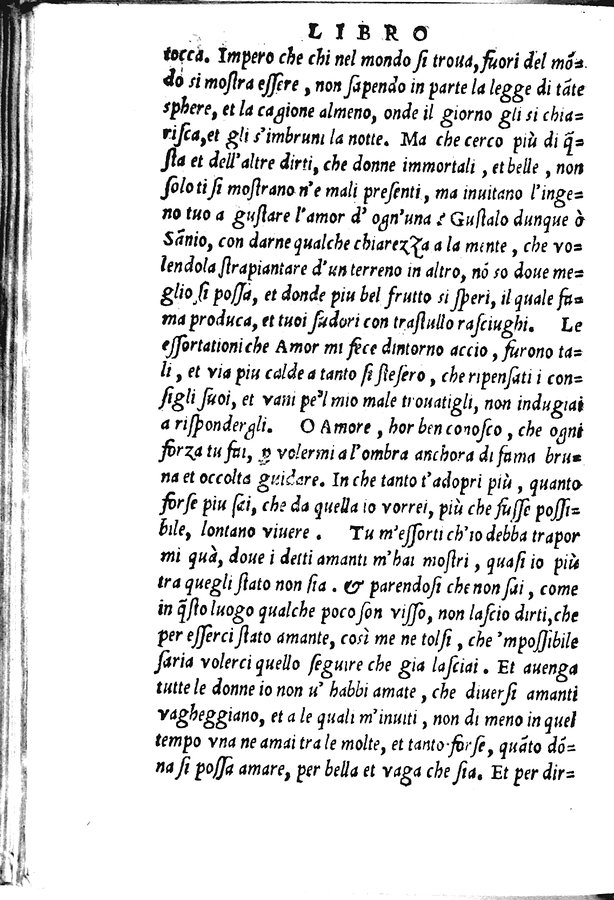 LIBRO
tocca. Impero che chi nel mondo ſi troua, fuori del mõ=
do si moſtra eſſere, non ſapendo in parte la legge di tãte
sphere, et la cagione almeno, onde il giorno gli si chia=
riſca, et gli s'imbruni la notte. Ma che cerco più di q̃=
ſta et dell'altre dirti, che donne immortali, et belle, non
ſolo ti ſi moſtrano n'e mali preſenti, ma inuitano l'inge=
no tuo a guſtare l'amor d' ogn'una? Guſtalo dunque ò
Sãnio, con darne qualche chiarezza a la mente, che vo=
lendola ſtrapiantare d'un terreno in altro, nõ so doue me=
glio ſi poſſa, et donde piu bel frutto si ſperi, il quale fa=
ma produca, et tuoi ſudori con traſtullo raſciughi. Le
eſſortationi che Amor mi fece dintorno accio, furono ta=
li, et via piu calde a tanto ſi ſteſero, che ripenſati i con=
ſigli ſuoi, et vani pe'l mio male trouatigli, non indugiai
a riſpondergli. O Amore, hor ben conoſco, che ogni
forza tu fai, ꝓ volermi a l'ombra anchora di fama bru=
na et occolta guidare. In che tanto t'adopri più, quanto
forſe piu ſai, che da quella io vorrei, più che fuſſe poſſi=
bile, lontano viuere. Tu m'eſſorti ch'io debba trapor
mi quà, doue i detti amanti m'hai moſtri, quaſi io più
tra quegli ſtato non ſia. & parendoſi che non ſai, come
in q̃ſto luogo qualche poco ſon viſſo, non laſcio dirti, che
per eſſerci ſtato amante, così me ne tolſi, che 'mpoſſibile
ſaria volerci quello ſeguire che gia laſciai. Et auenga
tutte le donne io non u' habbi amate, che diuerſi amanti
vagheggiano, et a le quali m'inuiti, non di meno in quel
tempo vna ne amai tra le molte, et tanto forſe, quãto dõ=
na ſi poſſa amare, per bella et vaga che ſia. Et per dir=